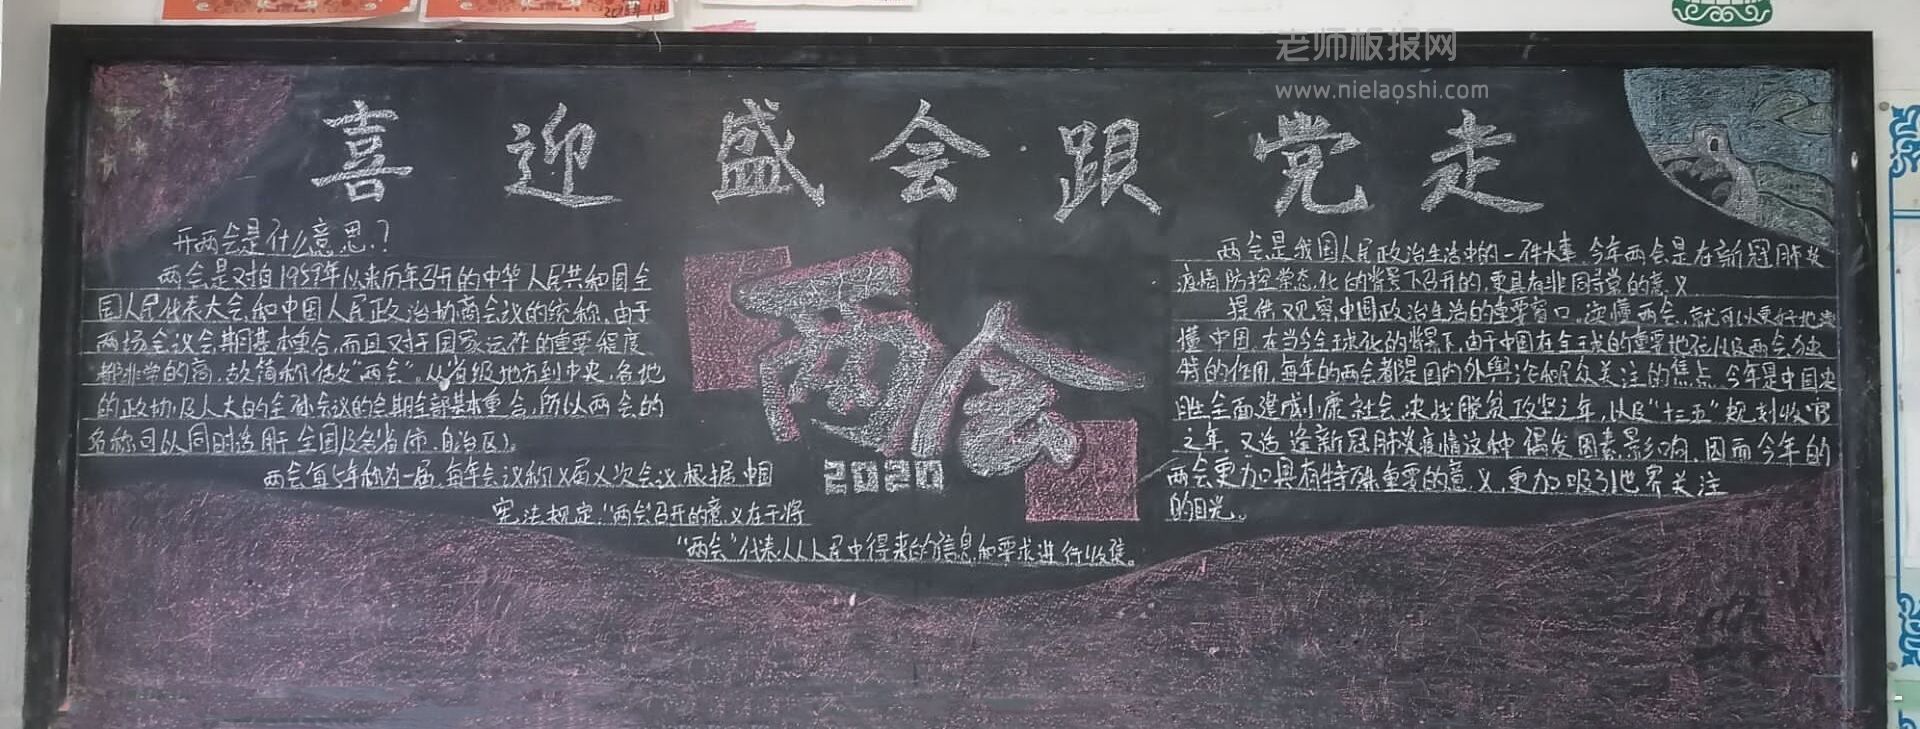 老师板报网
www.nielaoshi.com
喜迎盛会跟党走
开两会是什么意思?
两会是对自1959年以来历年召开的中华人民共和国全
国人民代表大会和中国人民政治协商会议的统称,由于
两场会议会期基本重合,而且对于国家运作的重要程度
都非常的高,故简称做“两会”。从省级地方到中央,各地
的政协及人大的全体会议的会期全部基本重合,所以两会的
名称可以同时适用于全国及各省(市、自治区)。
两会每5年称为一届,每年会议称X届X次会议,根据中国
宪法规定:“两会”召开的意义在于将
“两会”代表从人民中得来的信息和要求进行收集。
两会
2020
两会是我国人民政治生活中的一件大事,今年两会是在新冠肺炎
疫情防控常态化的背景下召开的,更具有非同寻常的意义
提供观察中国政治生活的重要窗口。读懂两会,就可以更好地读
懂中国,在当今全球化的背景下,由于中国在全球的重要地位以及两会独
特的作用,每年的两会都是国内外舆论和民众关注的焦点,今年是中国决
胜全面建成小康社会、决战脱贫攻坚之年,以及“十三五”规划收官
之年,又适逢新冠肺炎疫情这种偶发因素影响,因而今年的
两会更加具有特殊重要的意义,更加吸引世界关注
的目光。